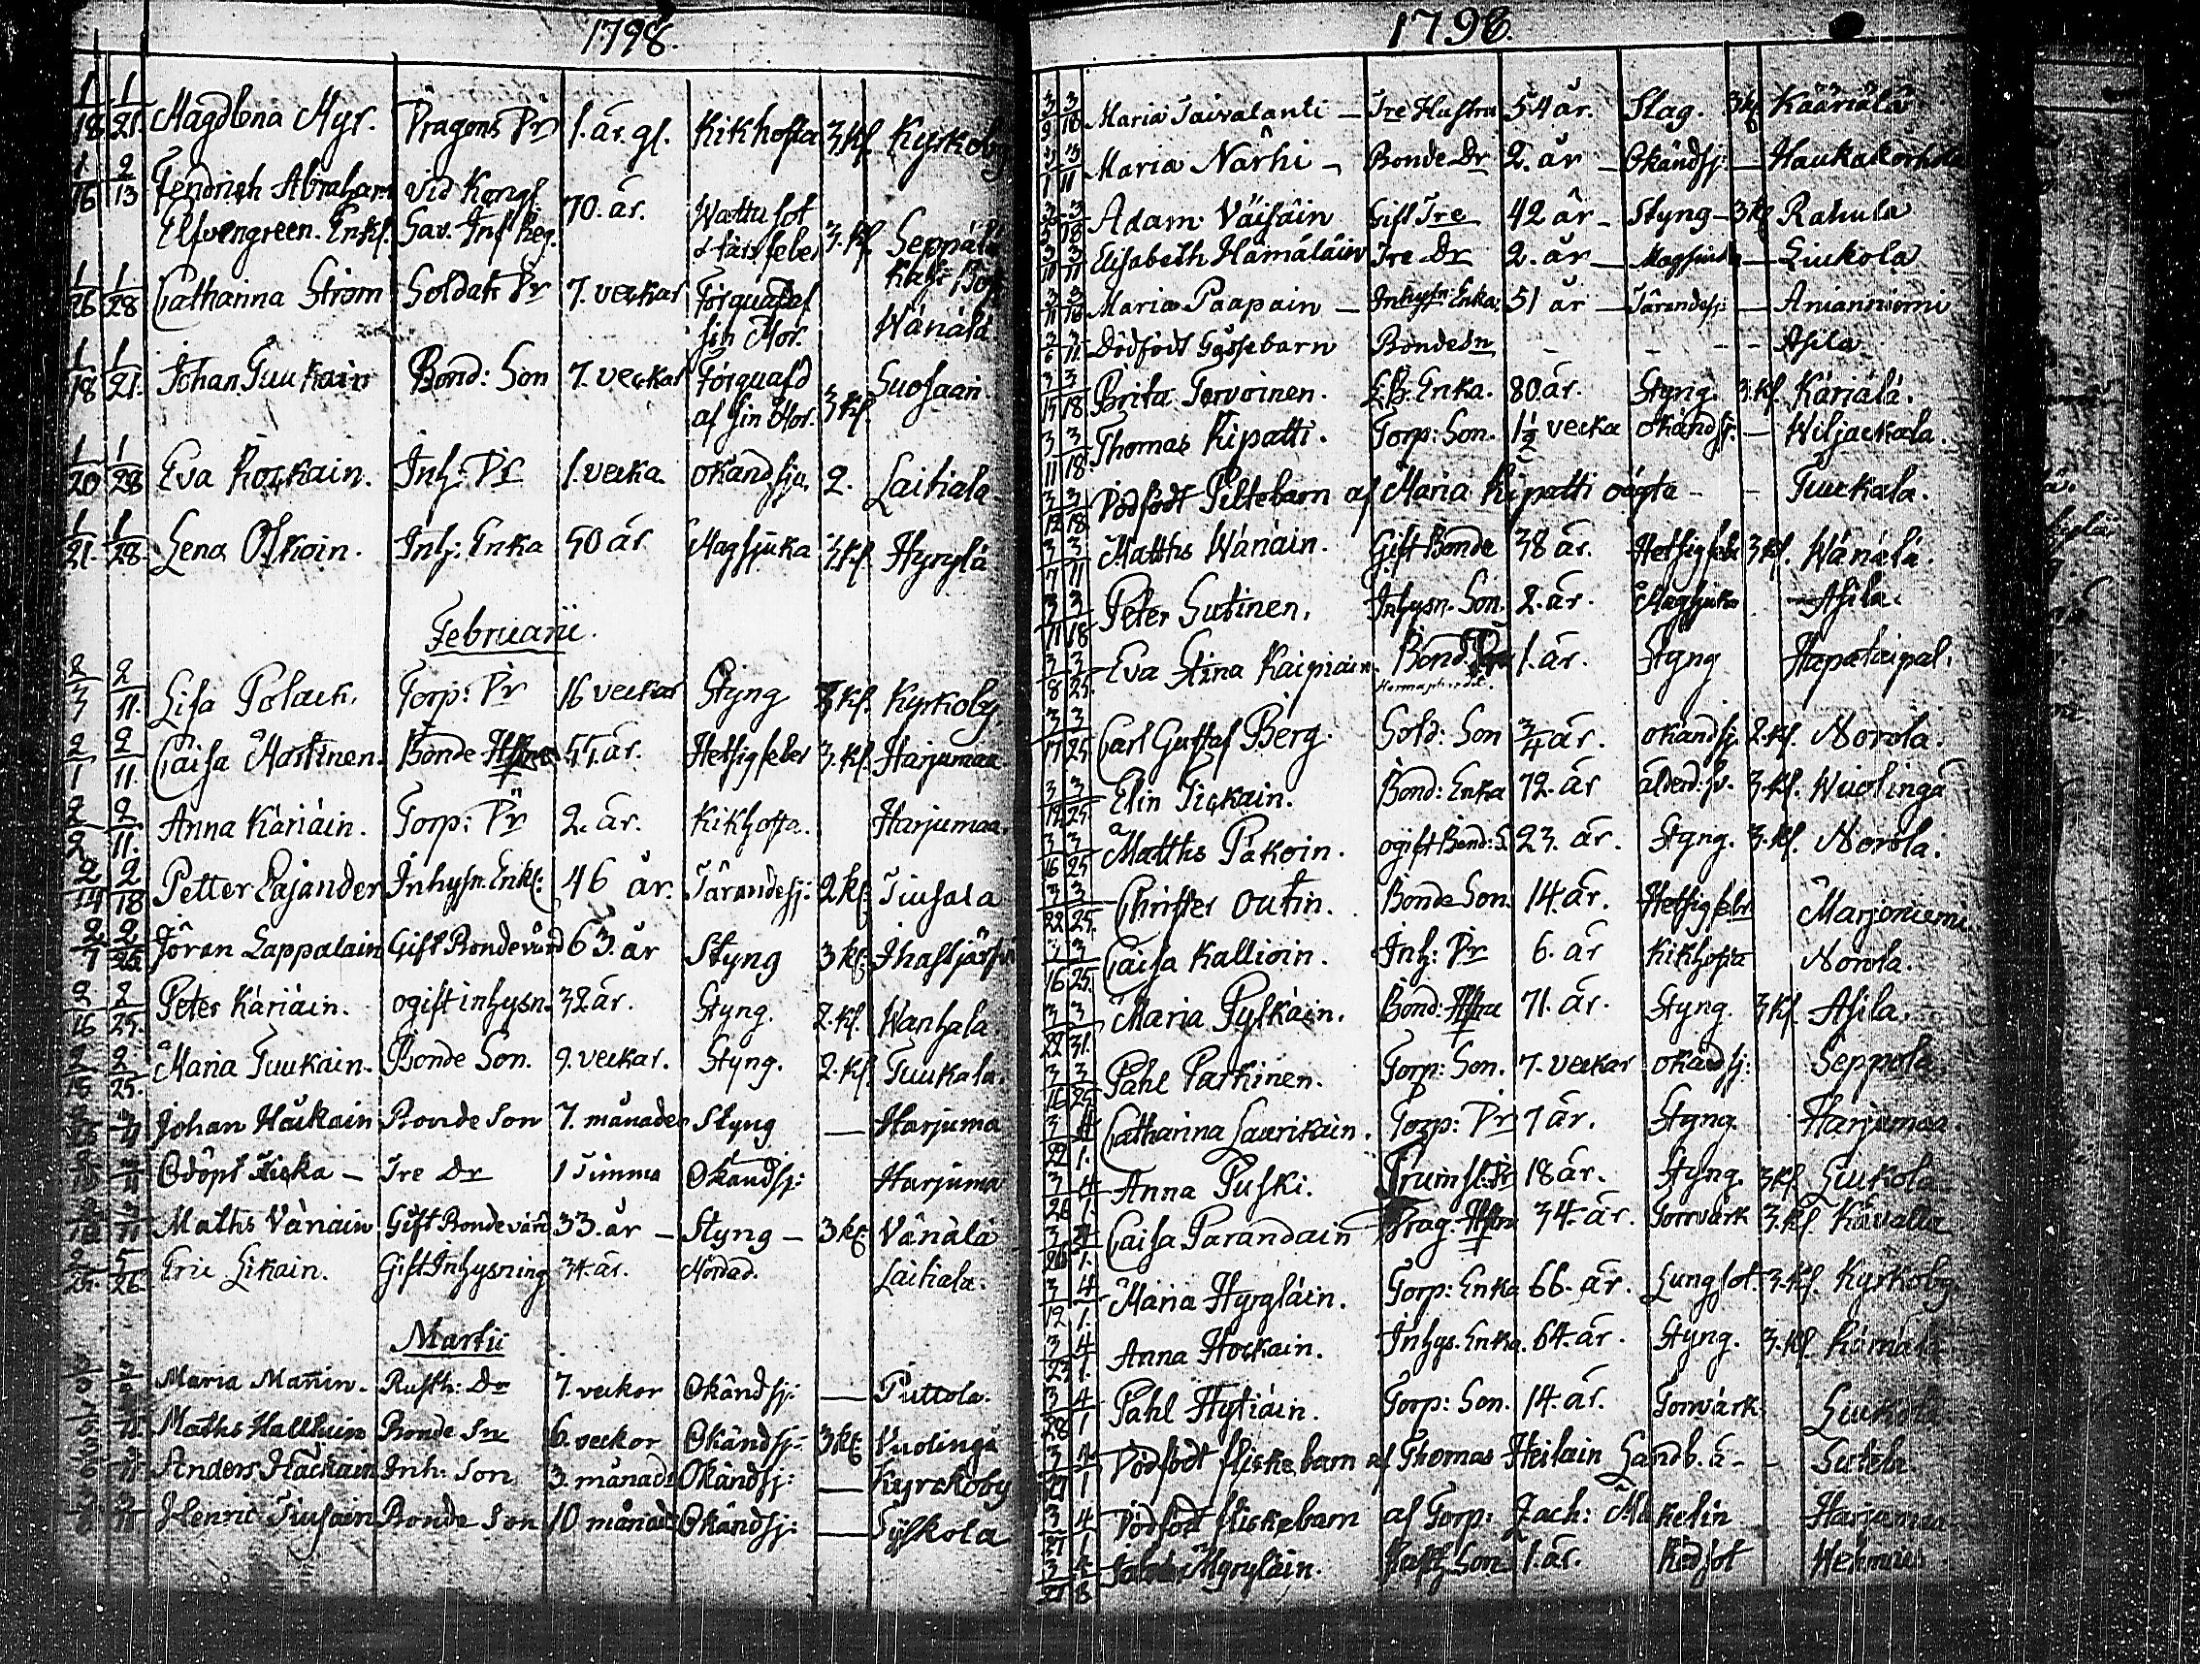 1798.
1/18 1/21. Magdlena Myr. Dragons Dr 1. år. gl. Kikhosta 3 kl. Kyrkoby
1/16 2/13 Fendrich Abraham vid Kongl. 70. år. Wattusot
Elfvengreen. Enkl. Sav. Inf. Reg. 3. kl. Seppälä
1/26 1/28 Catharina Ström Soldats Dr 7. veckor Förquafd af
sin Mor. Wänälä
1/18 1/21. Johan Tuukain Bond: Son 7. veckor Förquafd Suosaari
af sin Mor. 3 kl.
1/20 1/28 Eva Rockain. Inh: Dr 1. vecka okänd sju. 2. Laitiala
1/21. 1/28. Lena Oskoin. Inh: Enka 50 år Magsjuka 3 kl. Hyrylä
Februarii.
2/7 2/11. Lisa Polack. Torp: Dr 16 veckor Styng kl. Kyrkoby
2/1 2/11. Caisa Mårtinen. Bonde Hstru 55. år. Hetsigfeber 3. kl. Harjumaa
2/2 2/11. Anna Käriäin. Torp: Dr 2. år. Kikhosta. Harjumaa.
2/14 2/18 Petter Cajander Inhysn. Enkl: 46 år. Tärandesj: 2 kl: Tiusala
2/7 2/25 Jöran Lappalain Gift Bondevärd 63. år Styng 3 kl: Ihastjärfvi
2/16 2/25. Peter Käriäin. ogift inhysn. 32 år. Styng. 2. kl. Wanhala
2/15 2/25. Maria Tuukain. Bonde Son. 9. veckor. Styng. 2. kl. Tuukala.
Johan Häikäin Bonde Son 7. månader Styng — Harjuma
Odöpt Flicka — Tre Dr 1 Timma Okändsj: Harjuma
Maths Vänäin Gift Bondevärd 33. år — Styng — 3 kl: Vänälä
2/25. 5/26. Eric Likain. Gift Inhysning 34. år. Mördad. Laitiala.
Martii
Maria Mañin. Rusth: Dr 7. veckor Okändsj: — Puttola.
Maths Hallikain Bonde Sn 6. veckor Okändsj: 3 kl: Vuolinga
Anders Häckäin Inh: Son 3. månader Okändsj: — Kyrckoby
Henric Tiusain Bonde Son 10 månader Okändsj: — Syskola
1798.
3/9 3/10 Maria Taivalanti — Tre Hustru 54 år. Slag. 3 kl Kääriälä
3/1 3/11 Maria Närhi — Bonde Dr 2. år — Okändsj: — Haukakorhola
3/5 3/18 Adam Väisäin Gift Tre 42 år — Styng — 3 kl Rahula
3/10 3/11 Elisabeth Hämäläin Tre Dr 2. år — Magsiuka — Liukola
Maria Paapain — Inhysn: Enka 51 år — Tärandesj: — Anianniemi
3/6 3/11 Dödfödt Gossebarn Bondedn — — — Asila
3/15 3/18 Brita Tervoinen. Enka. 80 år. Styng. 3. kl. Käriälä.
3/11 3/18 Thomas Ripatti. Torp: Son. 1½ vecka okändsj. — Wiljackala.
3/12 3/18 Dödfödt Piltebarn af Maria Ripatti oägta — — Tuuckala.
3/7 3/11 Matths Wänäin. Gift Bonde 38 år. Hetsigfeber 3 kl. Wänälä.
3/11 3/18 Peter Sutinen. Inhysn. Son. 2. år. Magsjuka Asila.
3/8 3/25. Eva Stina Kaipiain. Bond. 1. år. Styng Hapataipal.
3/17 3/25 Carl Gustaf Berg. Sold: Son ¾ år. okändsj. 2. kl. Norola.
3/19 3/25 Elin Tickain. Bond: Enka 72. år ålderd: sv. 3. kl. Wuolinga
3/16 3/25 Matths Päkoin. ogift Bond: S. 23. år. Styng. 3. kl. Norola.
3/22 3/25. Christer Outin. Bonde Son. 14. år. Hetsigfeber Marjoniemi
3/16 3/25. Caisa Kallioin. Inh: Dr 6. år Kikhosta Norola.
3/22 3/31. Maria Pylkäin. Bond: Hstru 71. år. Styng. 3 kl. Asila.
3/16 3/25 Pahl Parkinen. Torp: Son. 7. veckor okändsj: Seppola.
3/22 4/1. Catharina Laurikain. Torp: Dr 7 år. Styng. Harjumaa.
3/26 4/1. Anna Puski. Trumsl: Dr 18 år. Styng. 3 kl Liukola
3/26 4/1. Caisa Parandain Drag. Hstru 34. år. Torrvärk 3. kl. Kävälä
3/19 4/1. Maria Hyrgläin. Torp: Enka 66. år. Lungsot. 3. kl. Kyrkoby
3/23 4/1. Anna Hockain. Inhys. Enka. 64. år. Styng. 3. kl.
3/28 4/1 Pahl Hytiäin. Torp: Son. 14. år. Torrvärk Liukola
3/27 4/1 Dödfödt flickebarn af Thomas Heilain Landb. — —
3/27 4/1 Dödfödt flickebarn af Torp: Zach: Makelin Harjumaa
3/27 4/8 Hyryläin. Rusth. Son 1. år. Rödsot